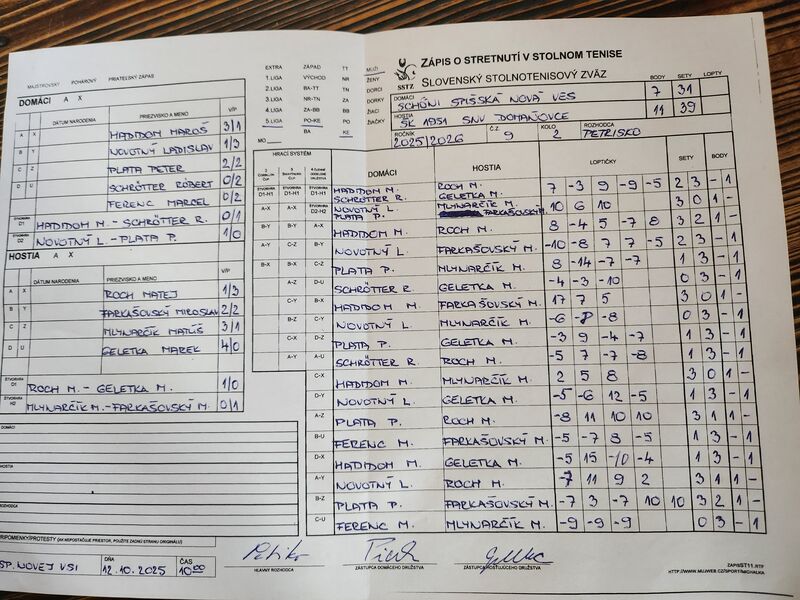 MAJSTROVSKÝ POHÁROVÝ PRIATEĽSKÝ ZÁPAS
DOMÁCI A X
DÁTUM NARODENIA PRIEZVISKO A MENO V/P
A X HADIDOM MAROŠ 3/1
B Y NOVOTNÝ LADISLAV 1/3
C Z PLATA PETER 2/2
D U SCHRÖTTER RÓBERT 0/2
FERENC MARCEL 0/2
ŠTVORHRA D1 HADIDOM M. - SCHRÖTTER R. 0/1
ŠTVORHRA D2 NOVOTNÝ L. - PLATA P. 1/0
HOSTIA A X
DÁTUM NARODENIA PRIEZVISKO A MENO V/P
A X ROCH MATEJ 1/3
B Y FARKAŠOVSKÝ MIROSLAV 2/2
C Z MLYNARČÍK MATÚŠ 3/1
D U GELETKA MAREK 4/0
ŠTVORHRA ROCH M. - GELETKA M. 1/0
ŠTVORHRA H2 MLYNARČÍK M. - FARKAŠOVSKÝ M. 0/1
DOMÁCI
HOSTIA
ROZHODCA
PRIPOMIENKY/PROTESTY (AK NEPOSTAČUJE PRIESTOR, POUŽITE ZADNÚ STRANU ORIGINÁLU)
SP. NOVEJ VSI DŇA 12.10.2025 ČAS 10:00
HLAVNÝ ROZHODCA ZÁSTUPCA DOMÁCEHO DRUŽSTVA ZÁSTUPCA HOSŤUJÚCEHO DRUŽSTVA
EXTRA ZÁPAD TT MUŽI
1. LIGA VÝCHOD NR ŽENY
2. LIGA BA-TT TN DORCI
3. LIGA NR-TN ZA DORKY
4. LIGA ZA-BB BB ŽIACI
5. LIGA PO-KE PO ŽIAČKY
MO BA KE
SSTZ
ZÁPIS O STRETNUTÍ V STOLNOM TENISE
SLOVENSKÝ STOLNOTENISOVÝ ZVÄZ
BODY SETY LOPTY
DOMÁCI SCHÖNI SPIŠSKÁ NOVÁ VES 7 31
HOSTIA ŠK 1951 SNV DOMAŇOVCE 11 39
ROČNÍK 2025/2026 Č.Z. 9 KOLO 2 ROZHODCA PETRISKO
HRACÍ SYSTÉM DOMÁCI HOSTIA LOPTIČKY SETY BODY
D1-H1 D1-H1 D1-H1 HADIDOM M. SCHRÖTTER R. ROCH M. GELETKA M. 7 -3 9 -9 -5 2 3 - 1
A-X A-X D2-H2 NOVOTNÝ L. PLATA P. MLYNARČÍK M. FARKAŠOVSKÝ M. 10 6 10 3 0 1 -
B-Y B-Y A-X HADIDOM M. ROCH M. 8 -4 5 -7 8 3 2 1 -
B-Y NOVOTNÝ L. FARKAŠOVSKÝ M. -10 -8 7 7 -5 2 3 - 1
B-X B-X C-Z PLATA P. MLYNARČÍK M. 8 -14 -7 -7 1 3 - 1
D-U SCHRÖTTER R. GELETKA M. -4 -3 -10 0 3 - 1
C-Y B-X HADIDOM M. FARKAŠOVSKÝ M. 17 7 5 3 0 1 -
B-Z C-Y NOVOTNÝ L. MLYNARČÍK M. -6 -8 -8 0 3 - 1
C-X D-Z PLATA P. GELETKA M. -3 9 -4 -7 1 3 - 1
A-Y A-U SCHRÖTTER R. ROCH M. -5 7 -7 -8 1 3 - 1
C-X HADIDOM M. MLYNARČÍK M. 2 5 8 3 0 1 -
D-Y NOVOTNÝ L. GELETKA M. -5 -6 12 -5 1 3 - 1
A-Z PLATA P. ROCH M. -8 11 10 10 3 1 1 -
B-U FERENC M. FARKAŠOVSKÝ M. -5 -7 8 -5 1 3 - 1
D-X HADIDOM M. GELETKA M. -5 15 -10 -4 1 3 - 1
A-Y NOVOTNÝ L. ROCH M. -7 11 9 2 3 1 1 -
B-Z PLATA P. FARKAŠOVSKÝ M. -7 3 -7 10 10 3 2 1 -
C-U FERENC M. MLYNARČÍK M. -9 -9 -9 0 3 - 1
ZAPISST11.RTF
HTTP://WWW.MUJWEB.CZ/SPORT/MICHALKA